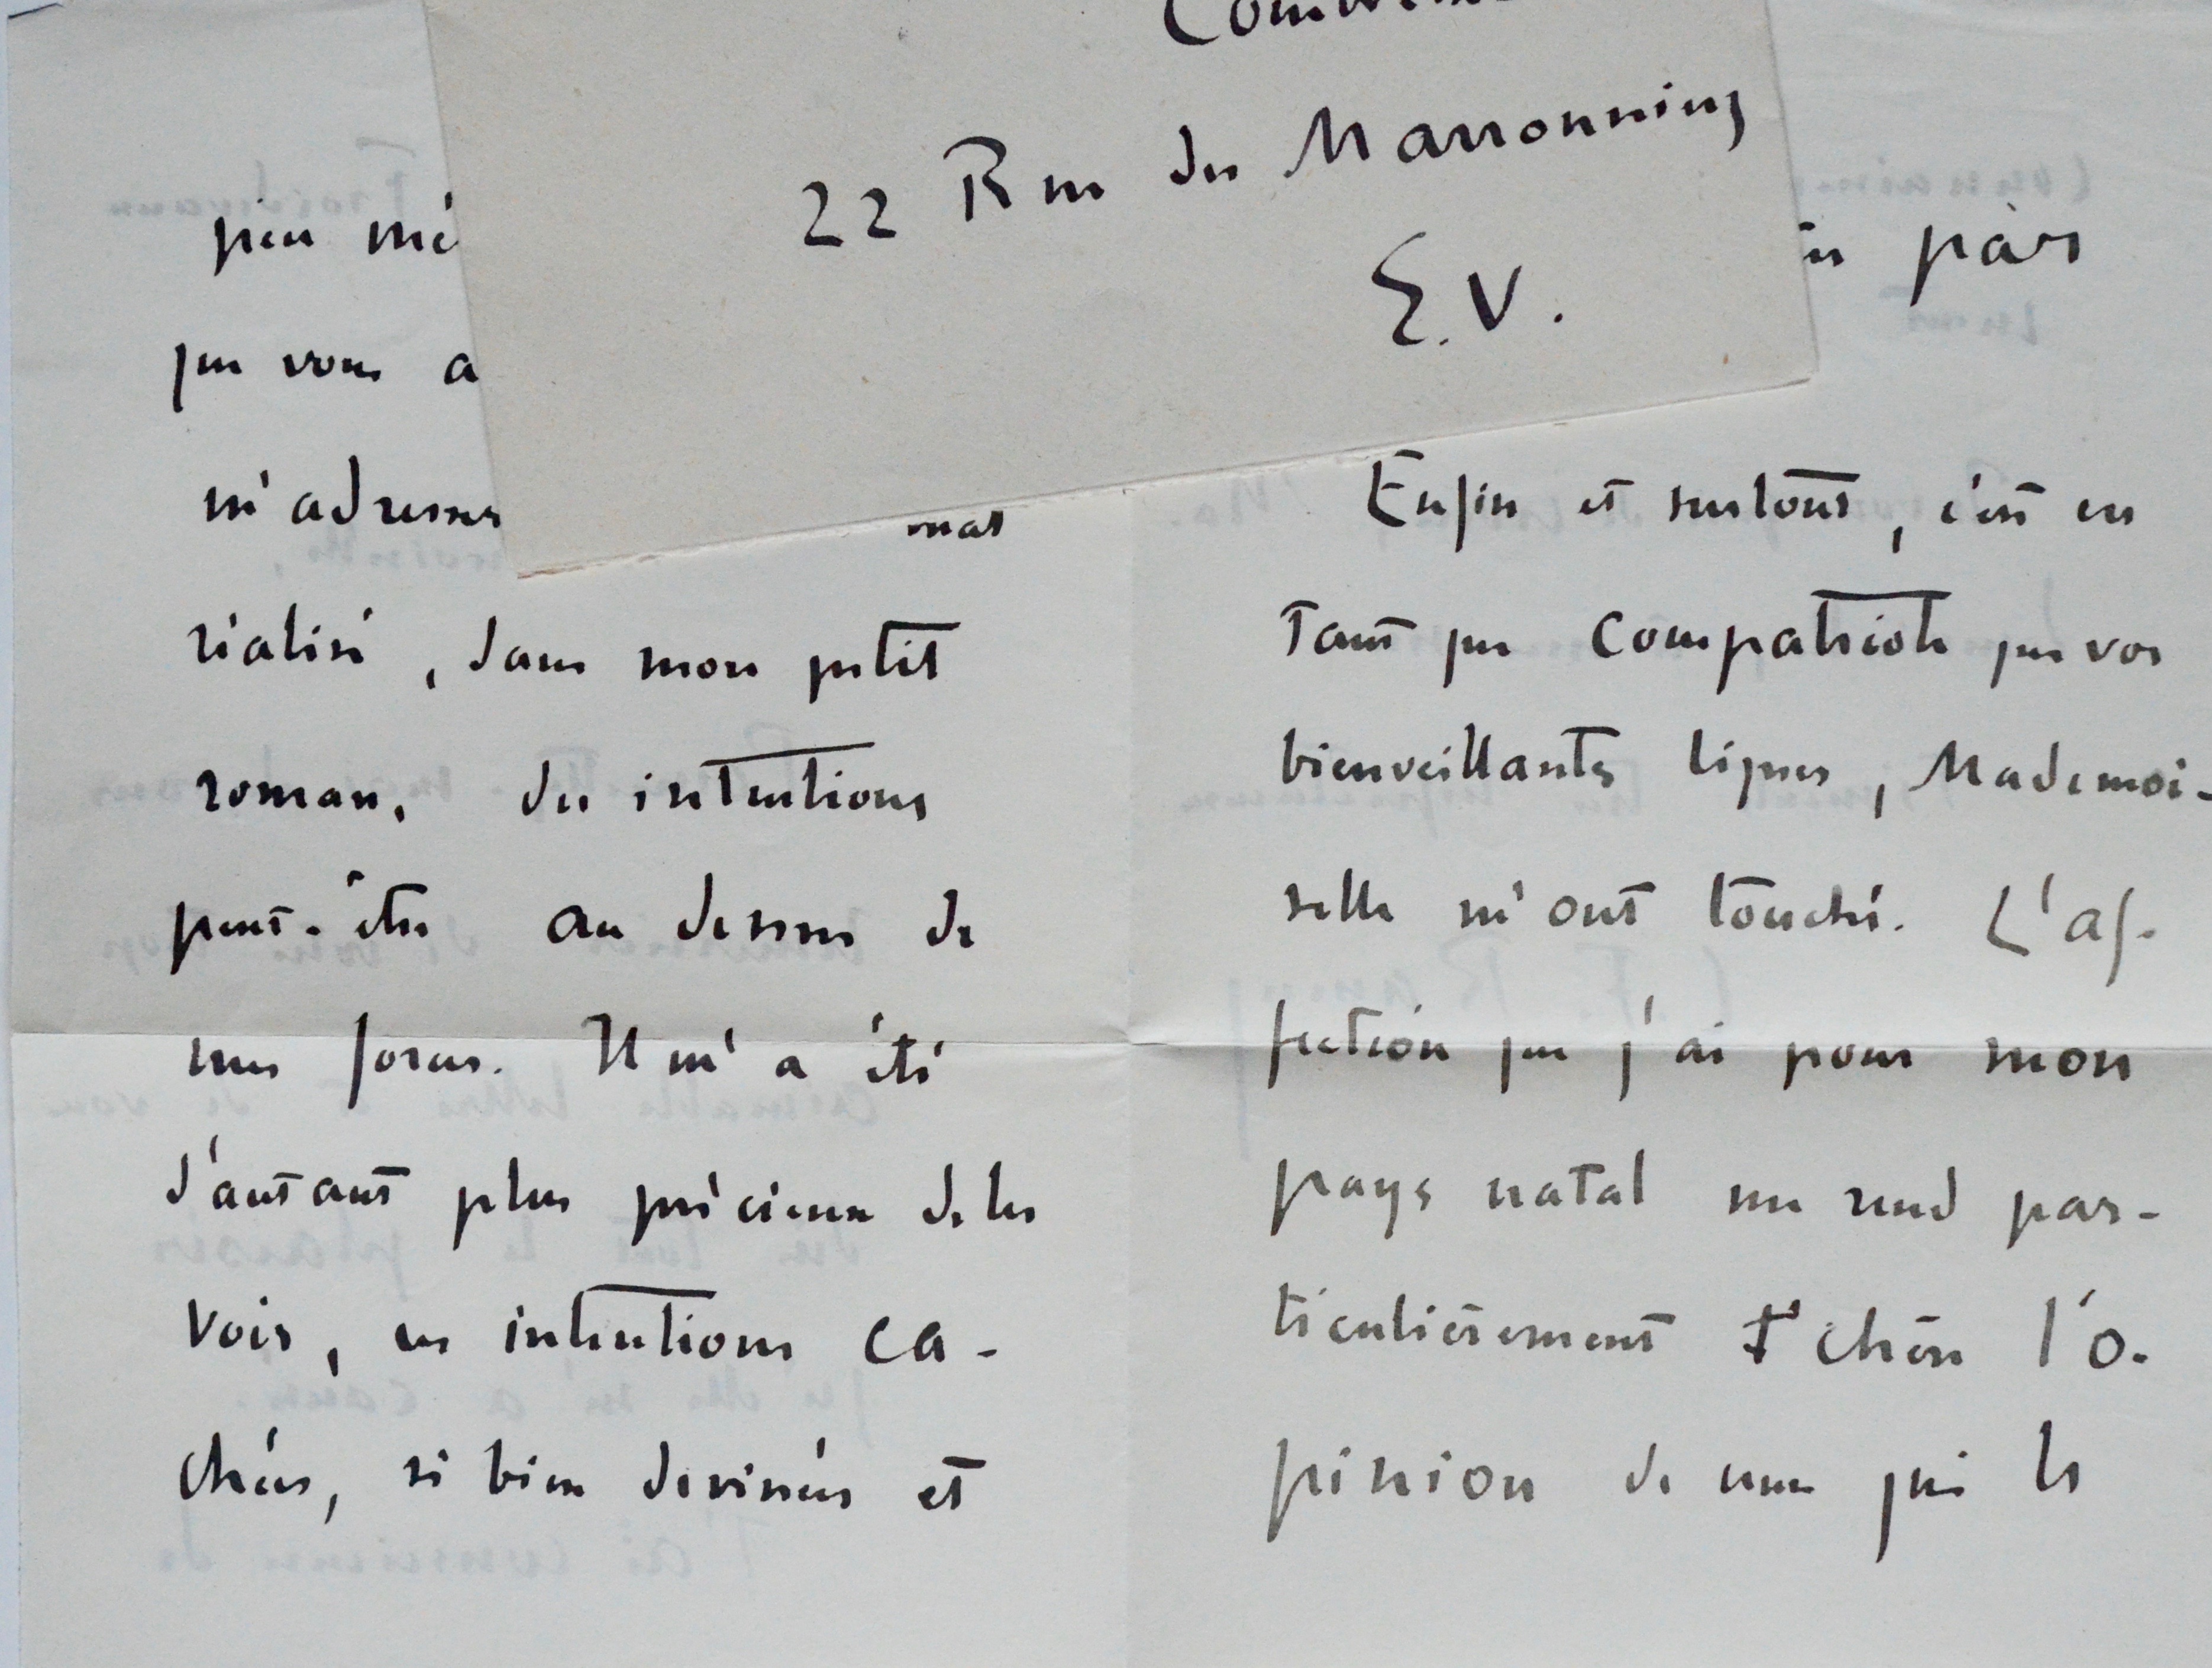 22 Rue des Marronniers
E.V.
peu mé
que vous a
m'adresser
réalisé, dans mon petit
roman, des intentions
peut-être au dessus de
mes forces. Il m'a été
d'autant plus précieux de les
voir, ces intentions ca-
chées, si bien devinées et
pas
Enfin et surtout, c'est en
tant que compatriote que vos
bienveillantes lignes, Mademoi-
selle m'ont touché. L'af-
fection que j'ai pour mon
pays natal me rend par-
ticulièrement chère l'o-
pinion de ceux qui le